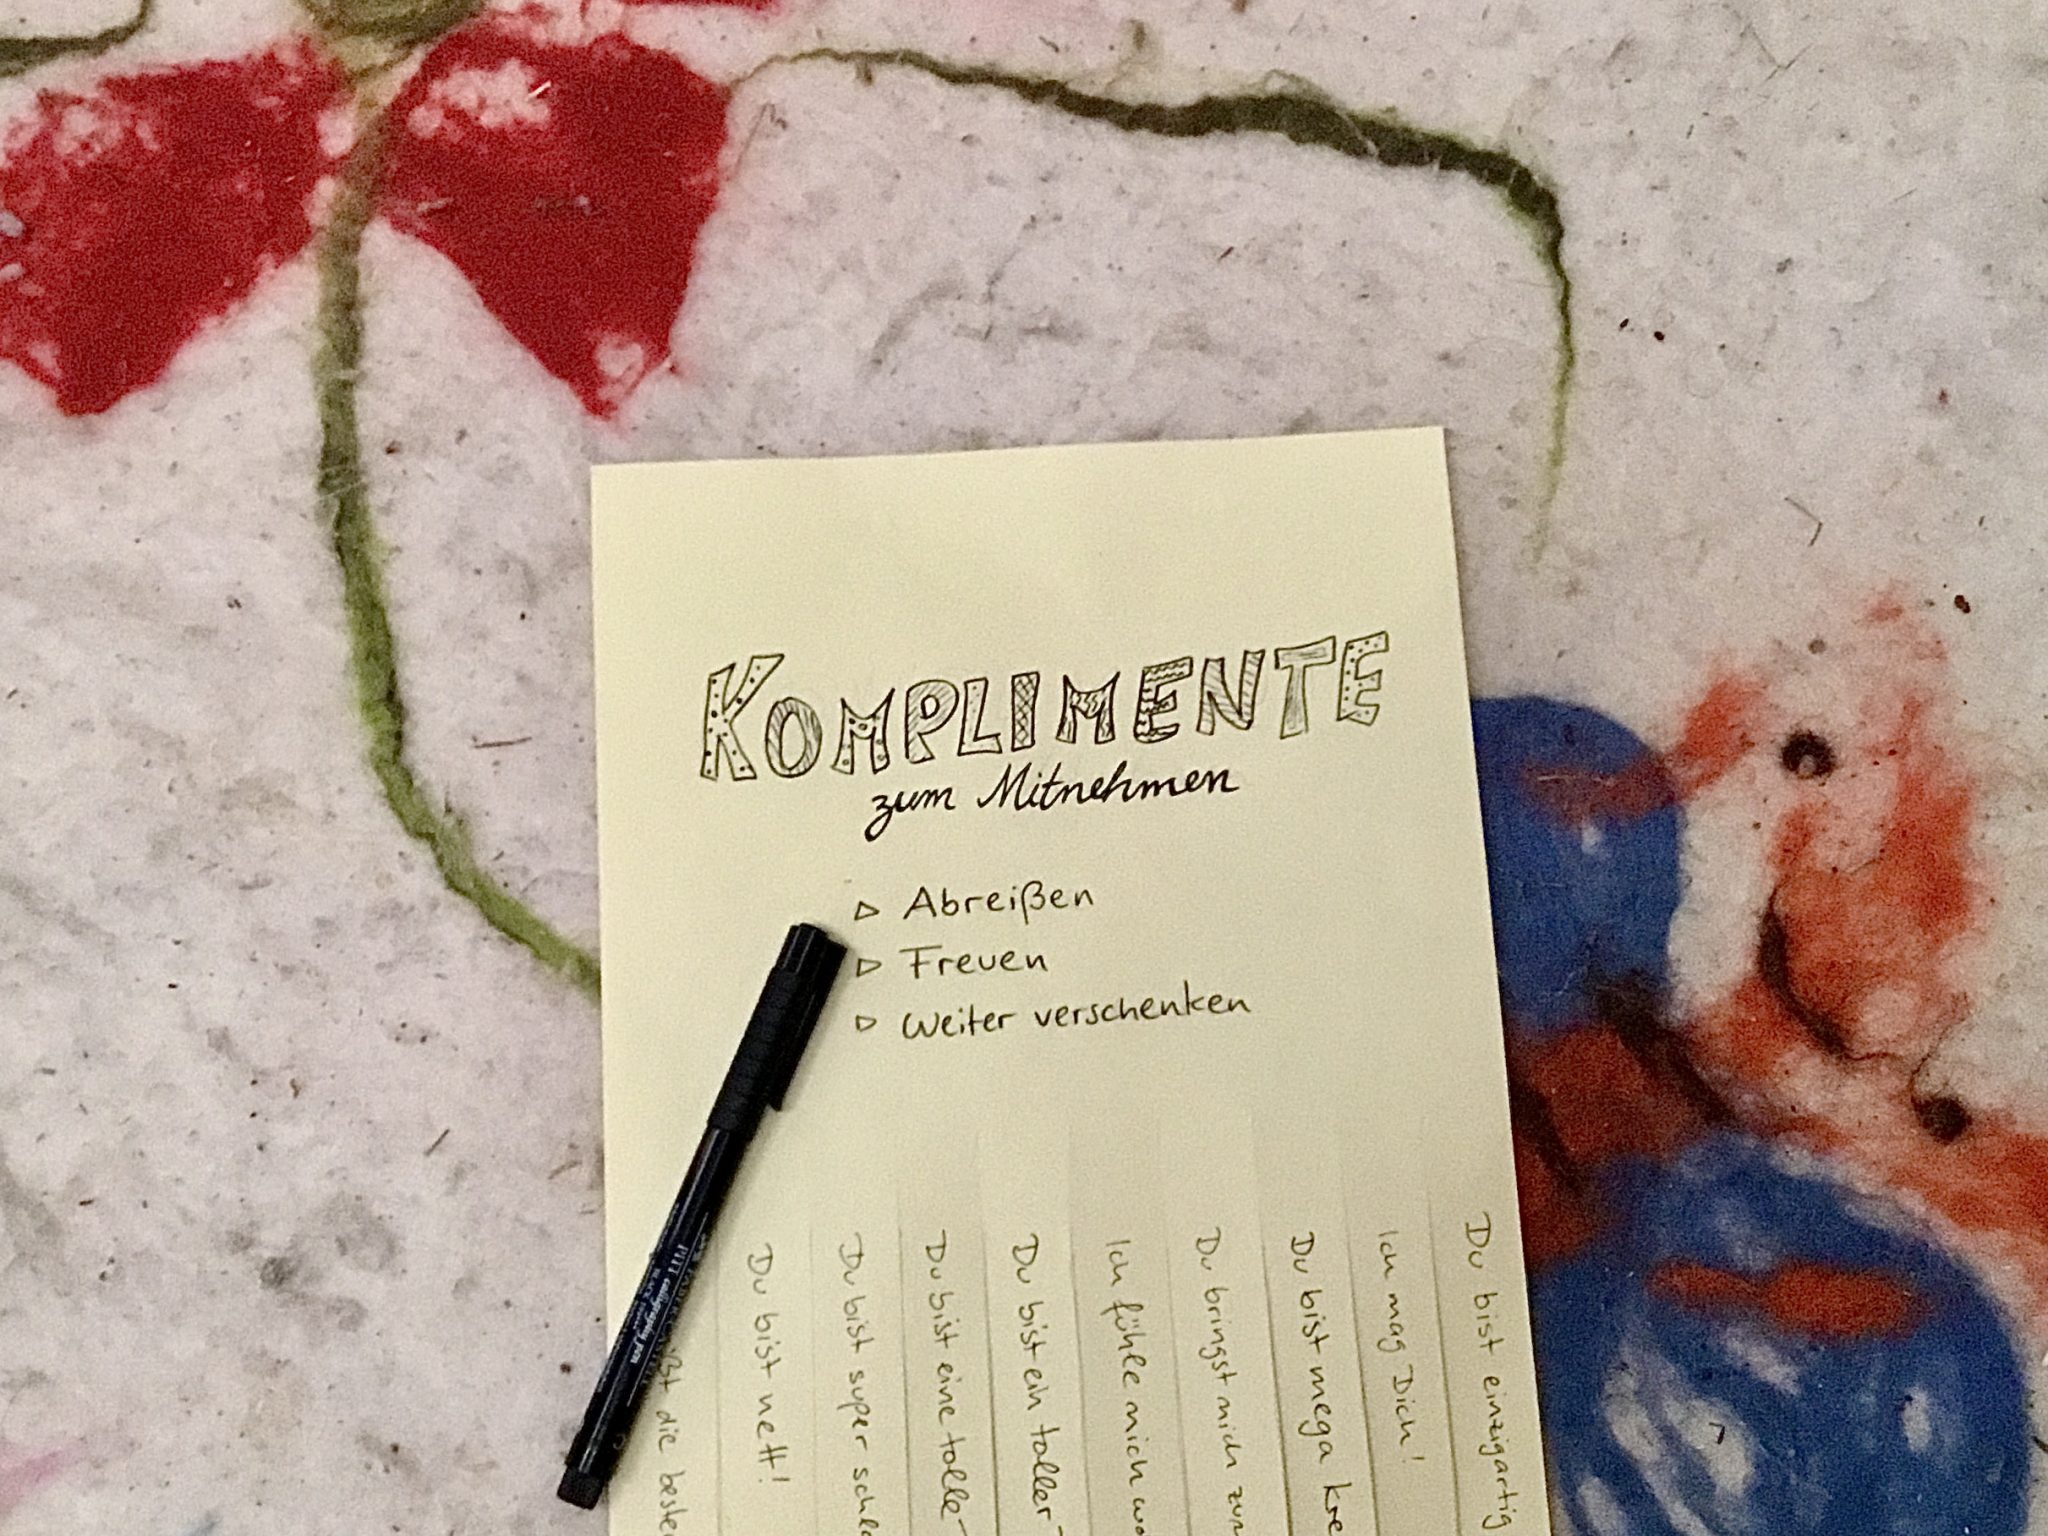 KOMPLIMENTE
zum Mitnehmen
▷ Abreißen
▷ Freuen
▷ Weiter verschenken
die
Du bist nett!
Du bist super
Du bist eine tolle
Du bist ein toller
Ich fühle mich
Du bringst mich
Du bist mega
Ich mag Dich!
Du bist einzigartig
PITT calligraphy pen